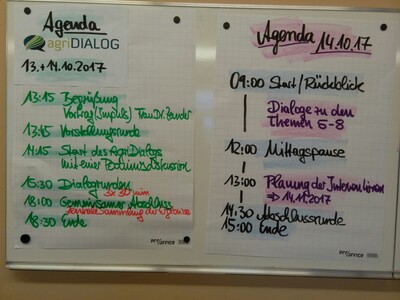 Agenda
agriDIALOG
13.+14.10.2017
13:15 Begrüßung
Vortrag (Impuls) Frau Dr. Zander
13:45 Vorstellungsrunde
14:15 Start des AgriDialogs
mit einer Podiumsdiskussion
15:30 Dialogrunden
3x 30 min
18:00 Gemeinsamer Abschluss
18:30 Ende
Agenda 14.10.17
09:00 Start/Rückblick
Dialoge zu den
Themen 5-8
12:00 Mittagspause
13:00 Planung der Interventionen
⇒ 14.11.2017
14:30 Abschlussrunde
15:00 Ende